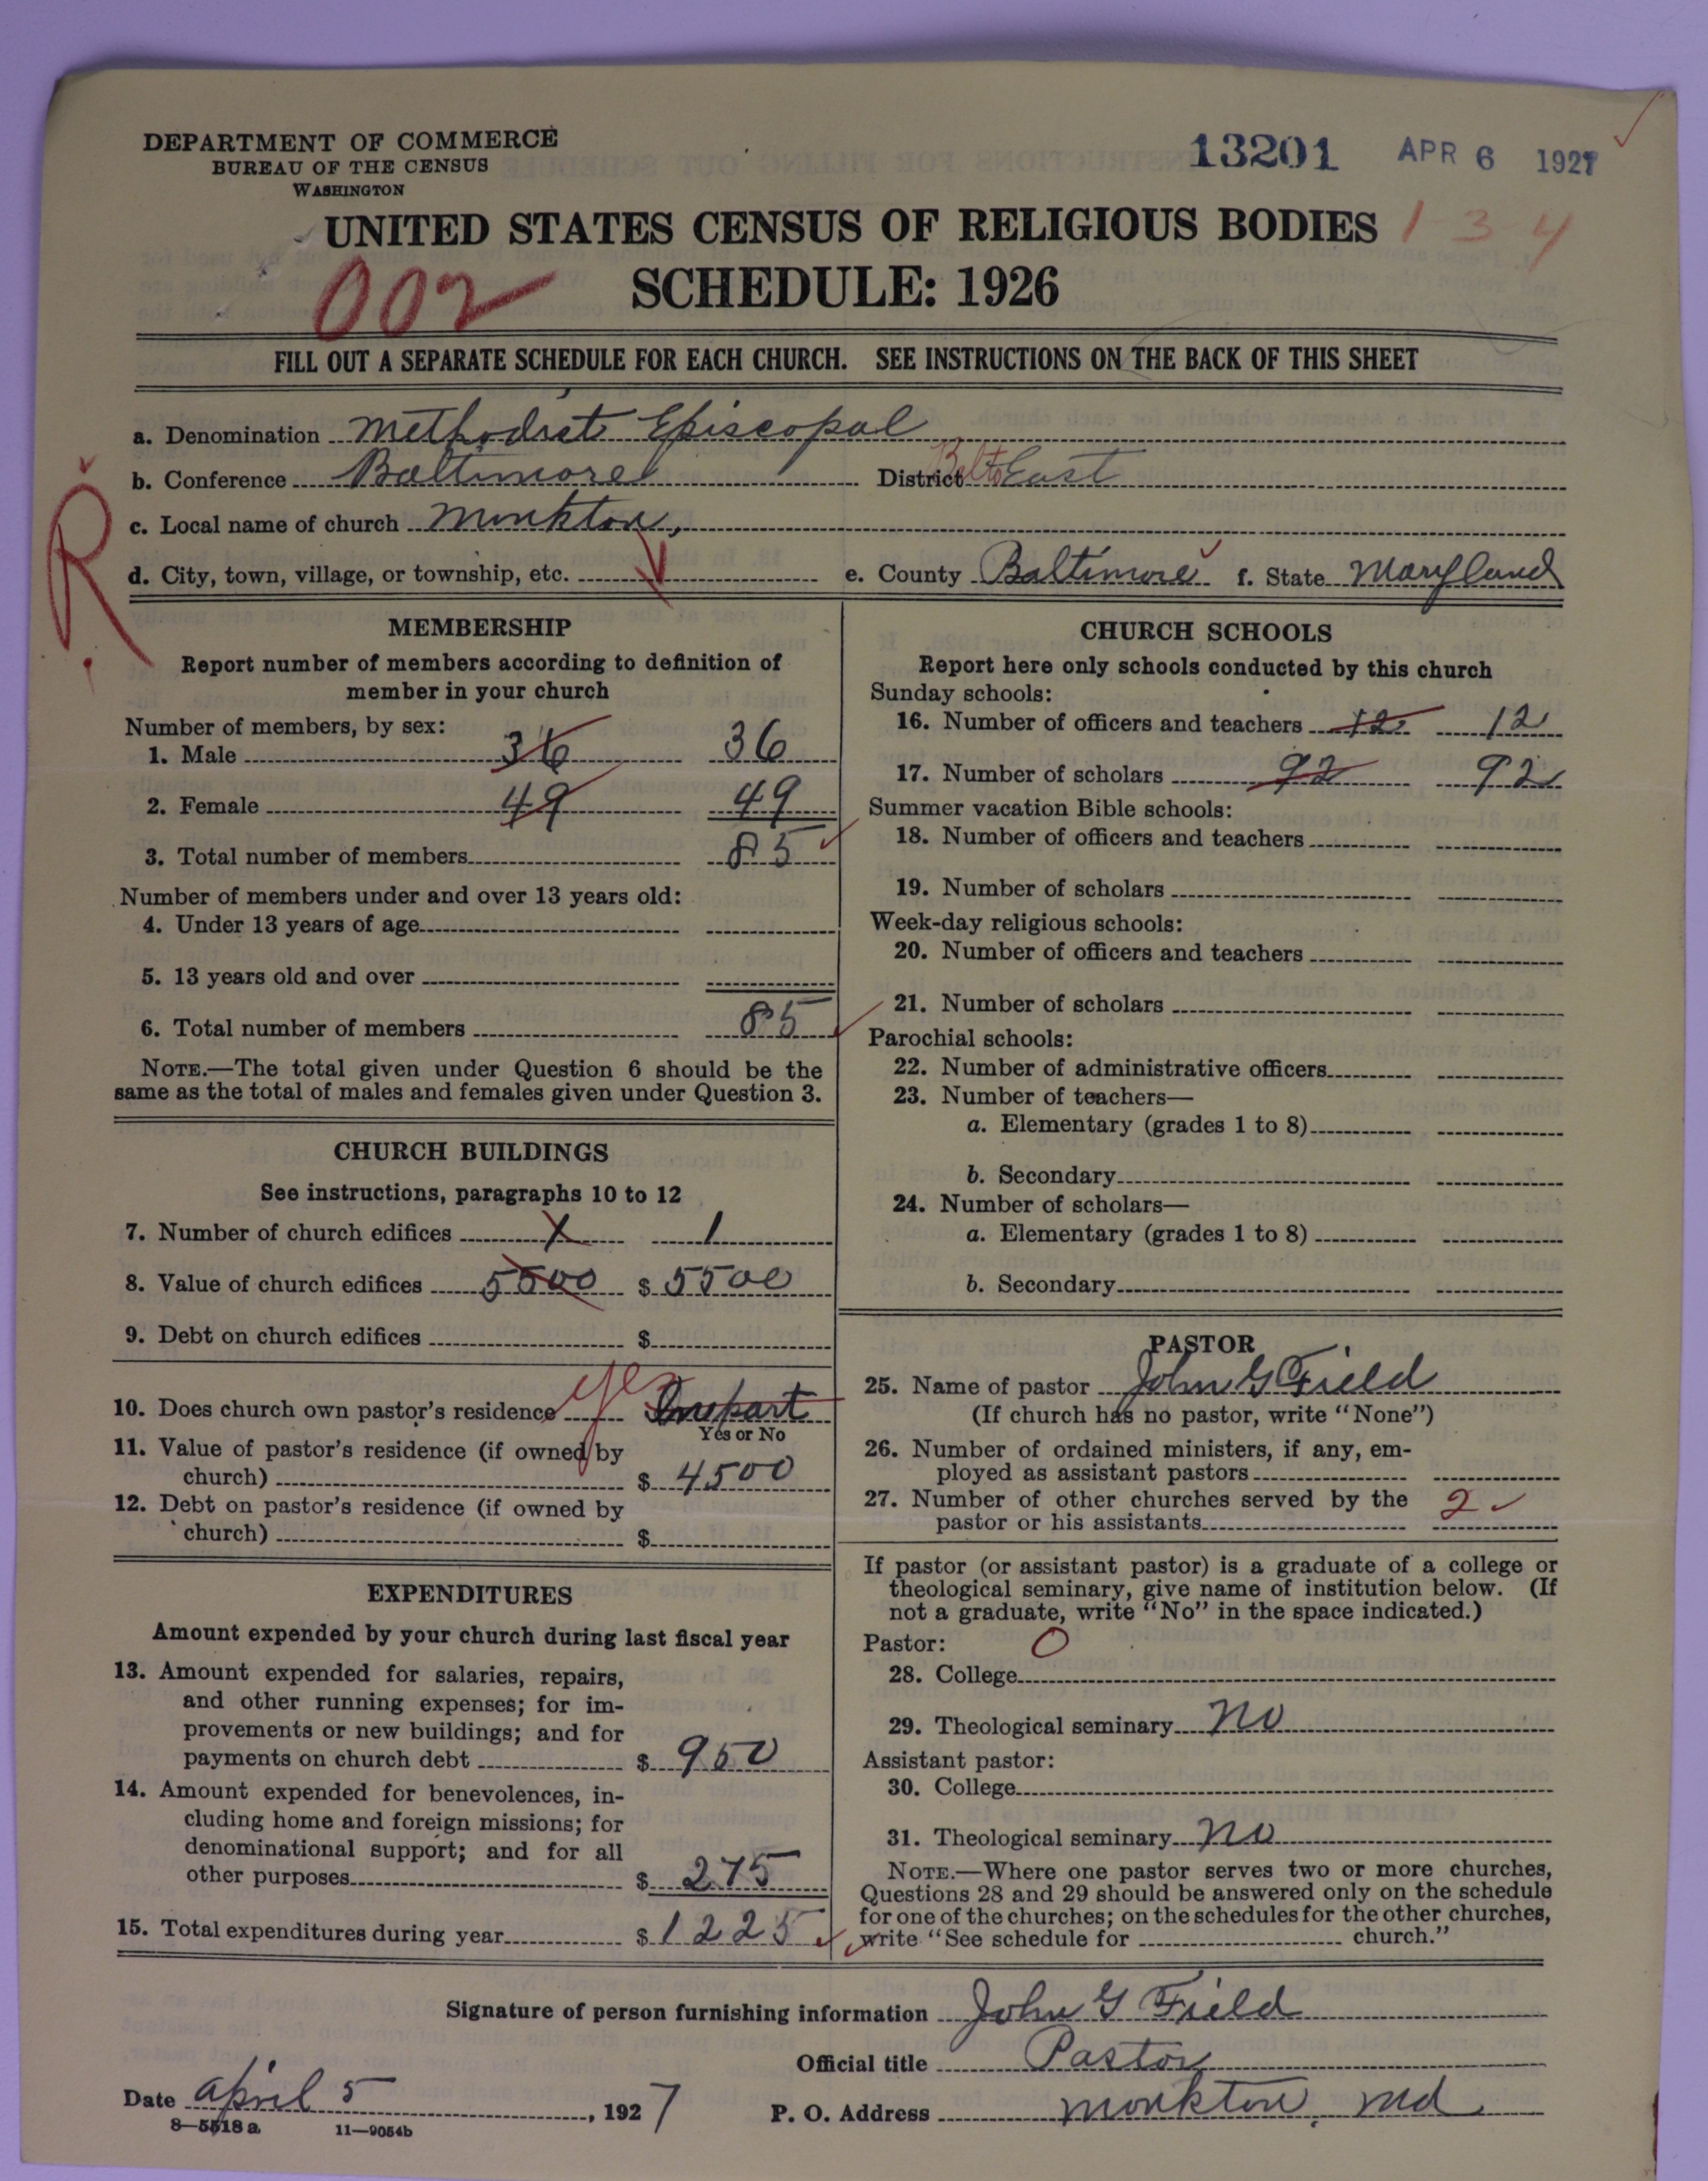 DEPARTMENT OF COMMERCE
BUREAU OF THE CENSUS
WASHINGTON
13201 APR 6 1927
UNITED STATES CENSUS OF RELIGIOUS BODIES 1 3 4
002 SCHEDULE: 1926
FILL OUT A SEPARATE SCHEDULE FOR EACH CHURCH. SEE INSTRUCTIONS ON THE BACK OF THIS SHEET
a. Denomination Methodist Episcopal
b. Conference Baltimore District Balto East
c. Local name of church Monkton,
d. City, town, village, or township, etc. e. County Baltimore f. State Maryland
R
MEMBERSHIP
Report number of members according to definition of
member in your church
Number of members, by sex:
1. Male 36 36
2. Female 49 49
3. Total number of members 85
Number of members under and over 13 years old:
4. Under 13 years of age
5. 13 years old and over
6. Total number of members 85
NOTE.—The total given under Question 6 should be the
same as the total of males and females given under Question 3.
CHURCH BUILDINGS
See instructions, paragraphs 10 to 12
7. Number of church edifices 1 1
8. Value of church edifices 5500 $ 5500
9. Debt on church edifices $
10. Does church own pastor's residence yes In part
Yes or No
11. Value of pastor's residence (if owned by
church) $ 4500
12. Debt on pastor's residence (if owned by
church) $
EXPENDITURES
Amount expended by your church during last fiscal year
13. Amount expended for salaries, repairs,
and other running expenses; for im-
provements or new buildings; and for
payments on church debt $ 950
14. Amount expended for benevolences, in-
cluding home and foreign missions; for
denominational support; and for all
other purposes $ 275
15. Total expenditures during year $ 1225
CHURCH SCHOOLS
Report here only schools conducted by this church
Sunday schools:
16. Number of officers and teachers 12 12
17. Number of scholars 92 92
Summer vacation Bible schools:
18. Number of officers and teachers
19. Number of scholars
Week-day religious schools:
20. Number of officers and teachers
21. Number of scholars
Parochial schools:
22. Number of administrative officers
23. Number of teachers—
a. Elementary (grades 1 to 8)
b. Secondary
24. Number of scholars—
a. Elementary (grades 1 to 8)
b. Secondary
PASTOR
25. Name of pastor John G Field
(If church has no pastor, write "None")
26. Number of ordained ministers, if any, em-
ployed as assistant pastors
27. Number of other churches served by the
pastor or his assistants 2
If pastor (or assistant pastor) is a graduate of a college or
theological seminary, give name of institution below. (If
not a graduate, write "No" in the space indicated.)
Pastor: O
28. College
29. Theological seminary No
Assistant pastor:
30. College
31. Theological seminary No
NOTE.—Where one pastor serves two or more churches,
Questions 28 and 29 should be answered only on the schedule
for one of the churches; on the schedules for the other churches,
write "See schedule for church."
Signature of person furnishing information John G Field
Official title Pastor
Date April 5, 1927 P. O. Address Monkton, Md
8—5518 a 11—9054b